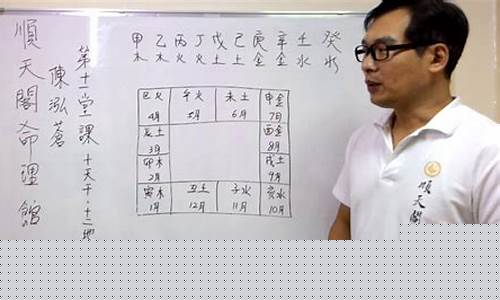 順天閣命理館
第十一堂課 十天干.十二地
陳泓蒼
甲乙丙丁戊己庚辛壬癸
木木火火土土金金水水
巳火 午火 未土 申金
4月 5月 6月 7月
辰土 酉金
3月 8月
卯木 戌土
2月 9月
寅木 丑土 子水 亥水
1月 12月 11月 10月
順天閣